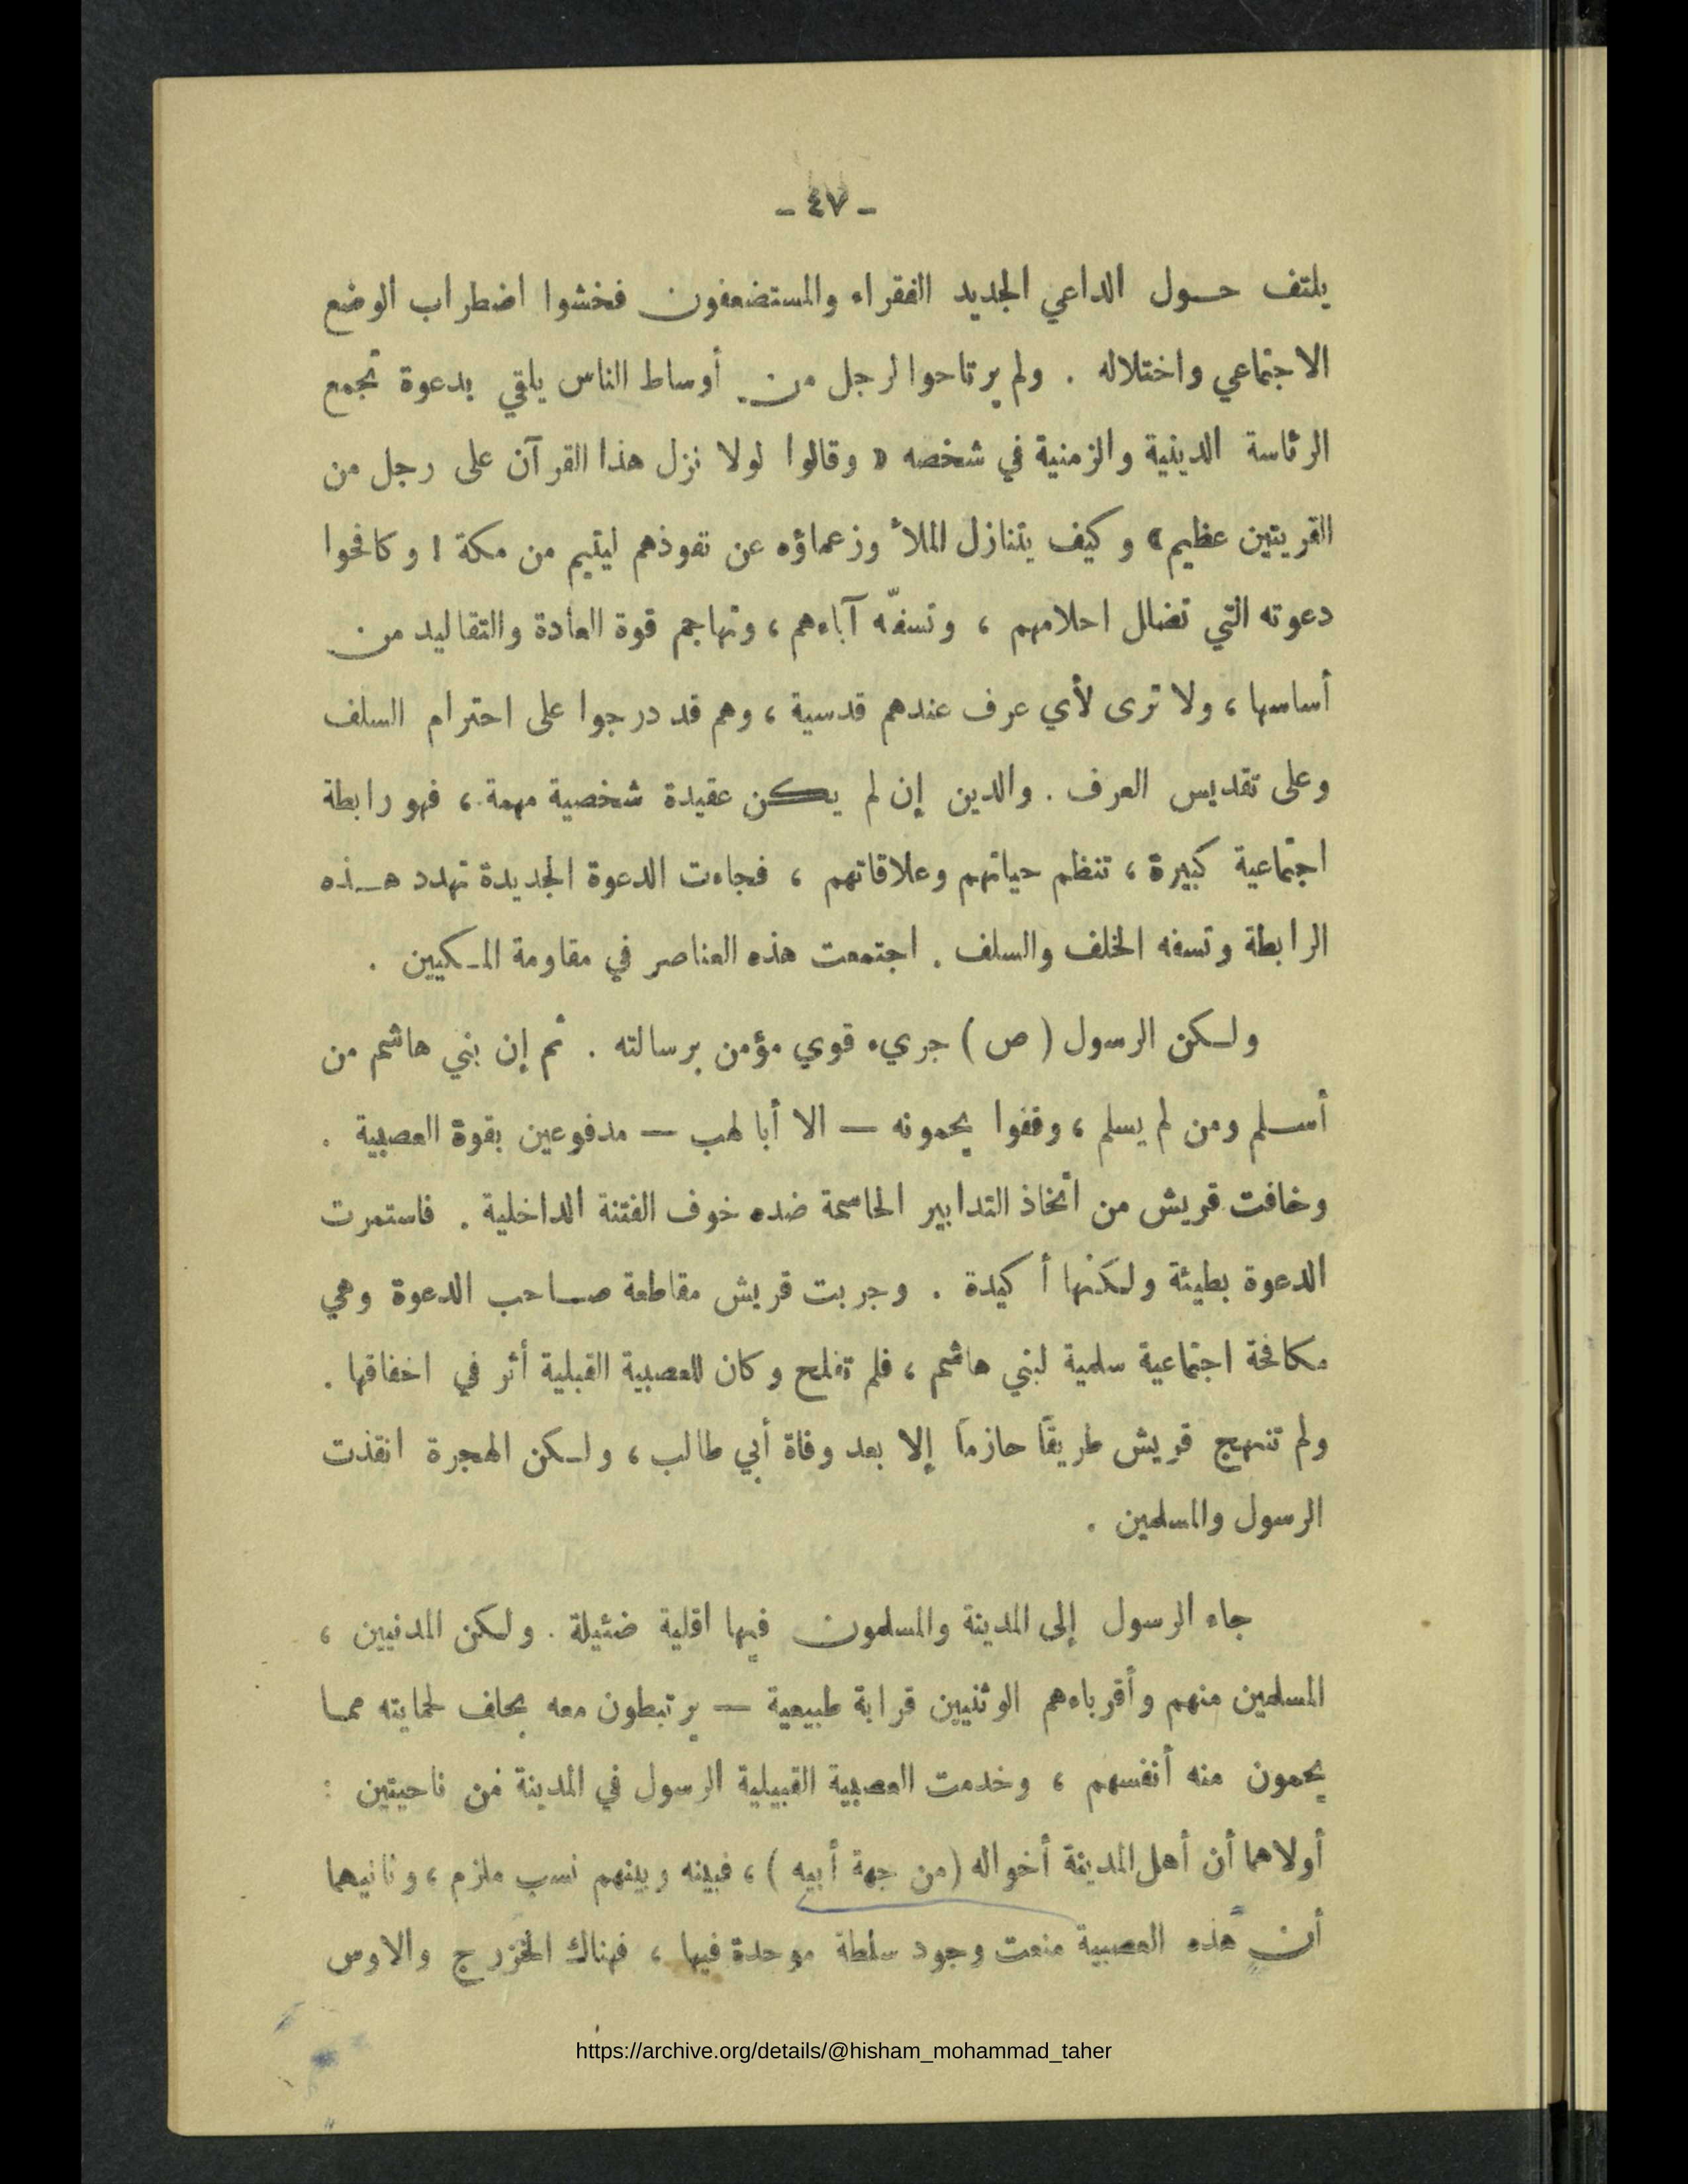 - ٤٧ -
يلتف حول الداعي الجديد الفقراء والمستضعفون فخشوا اضطراب الوضع
الاجتماعي واختلاله . ولم يرتاحوا لرجل من أوساط الناس يلقي بدعوة تجمع
الرئاسة الدينية والزمنية في شخصه « وقالوا لولا نزل هذا القرآن على رجل من
القريتين عظيم » وكيف يتنازل الملأ وزعماؤه عن نفوذهم ليتيم من مكة ! وكافحوا
دعوته التي تضلل احلامهم ، وتسفّه آباءهم ، وتهاجم قوة العادة والتقاليد من
أساسها ، ولا ترى لأي عرف عندهم قدسية ، وهم قد درجوا على احترام السلف
وعلى تقديس العرف . والدين إن لم يكن عقيدة شخصية مهمة ، فهو رابطة
اجتماعية كبيرة ، تنظم حياتهم وعلاقاتهم ، فجاءت الدعوة الجديدة تهدد هذه
الرابطة وتسفه الخلف والسلف . اجتمعت هذه العناصر في مقاومة المكيين .
ولكن الرسول ( ص ) جريء قوي مؤمن برسالته . ثم إن بني هاشم من
أسلم ومن لم يسلم ، وقفوا يحمونه — الا أبا لهب — مدفوعين بقوة العصبية .
وخافت قريش من اتخاذ التدابير الحاسمة ضده خوف الفتنة الداخلية . فاستمرت
الدعوة بطيئة ولكنها أكيدة . وجربت قريش مقاطعة صاحب الدعوة وهي
مكافحة اجتماعية سلمية لبني هاشم ، فلم تفلح وكان للعصبية القبلية أثر في اخفاقها .
ولم تنهج قريش طريقاً حازماً إلا بعد وفاة أبي طالب ، ولكن الهجرة انقذت
الرسول والمسلمين .
جاء الرسول إلى المدينة والمسلمون فيها اقلية ضئيلة . ولكن المدنيين ،
المسلمين منهم وأقرباءهم الوثنيين قرابة طبيعية — يرتبطون معه بحلف لحمايته مما
يحمون منه أنفسهم ، وخدمت العصبية القبيلية الرسول في المدينة من ناحيتين :
أولاهما أن أهل المدينة أخواله ( من جهة أبيه ) ، فبينه وبينهم نسب ملزم ، وثانيهما
أن هذه العصبية منعت وجود سلطة موحدة فيها ، فهناك الخزرج والاوس
https://archive.org/details/@hisham_mohammad_taher